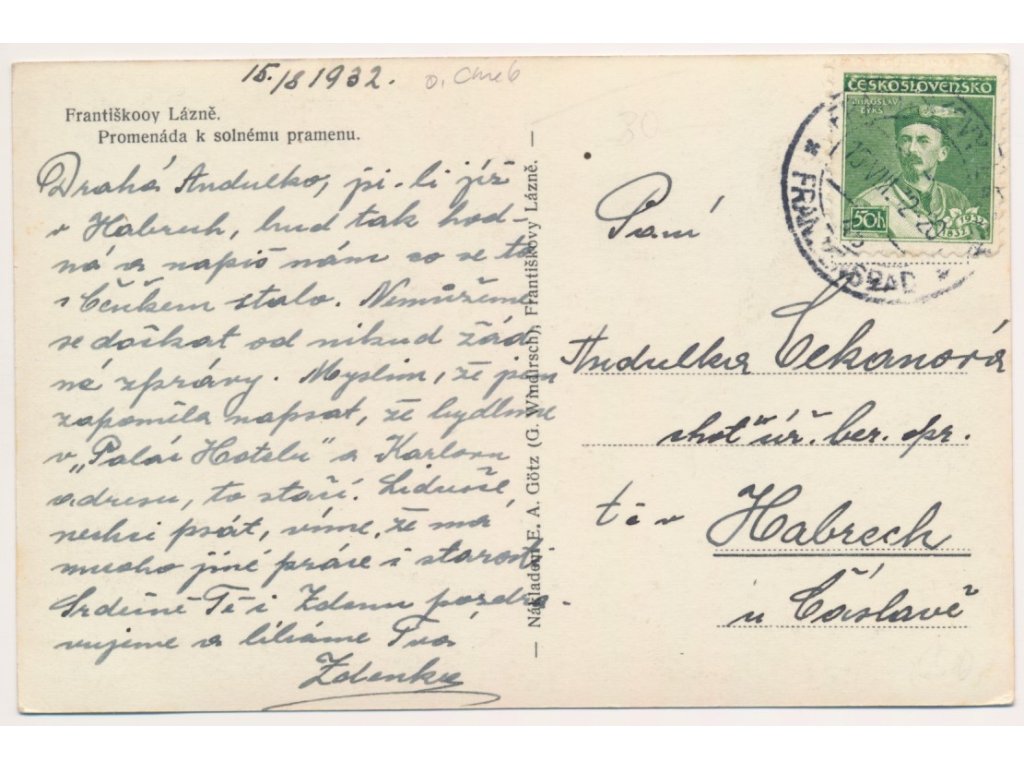 15./8 1932.
o. Cheb
30
Františkooy Lázně.
Promenáda k solnému pramenu.
Drahá Andulko, jsi-li již
v Habrech, buď tak hod-
ná a napiš nám co se to
s Ččúkem stalo. Nemůžeme
se dočkat od nikud žád
né zprávy. Myslím, že jsem
zapoměla napsat, že bydlíme
v „Palác Hotelu" a Karlovu
adresu, to stačí. Liduše,
nechci psát, víme, že má
mnoho jiné práce i starosti
Srdečně Tě i Zdenu pozdra-
vujeme a líbáme Tvá
Zdenka
— Nákladem E. A. Götz (G. Windirsch), Františkovy Lázně. —
ČESKOSLOVENSKO
MIROSLAV
TYRŠ
50h
1832 1932
FRANZENSBAD
Paní
Andulka Čekanová
choť úř. ber. spr.
t. č. v Habrech
u Čáslavě